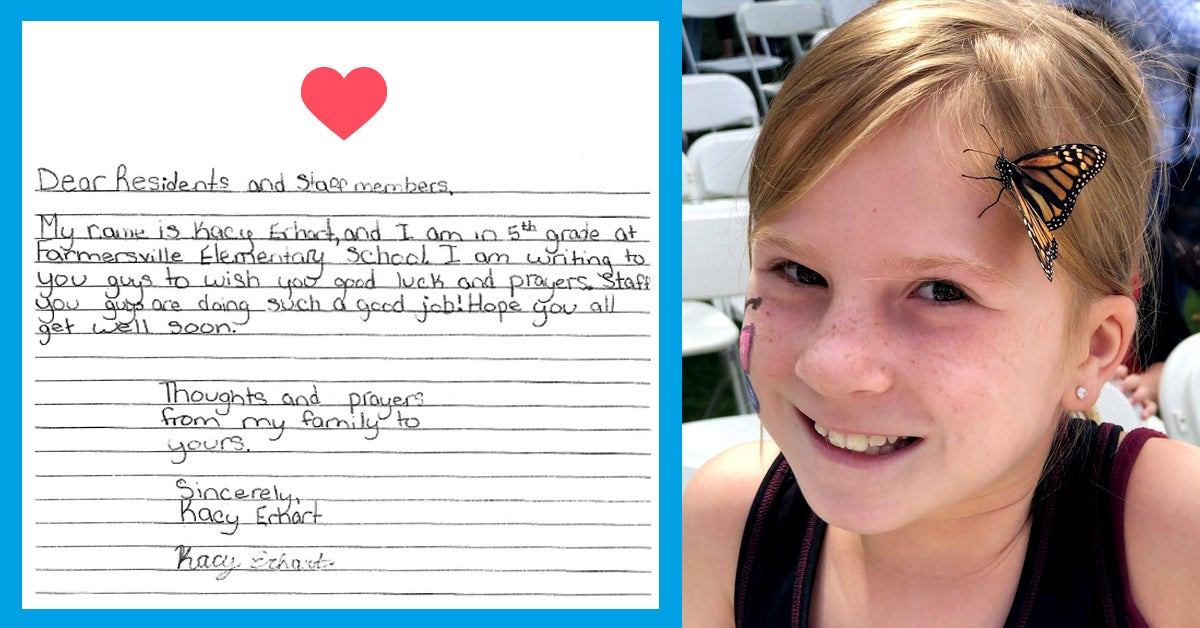 Dear Residents and Staff members,
My name is Kacy Erhart, and I am in 5th grade at
Farmersville Elementary School. I am writing to
you guys to wish you good luck and prayers. Staff
you guys are doing such a good job! Hope you all
get well soon.
Thoughts and prayers
from my family to
yours.
Sincerely,
Kacy Erhart
Kacy Erhart